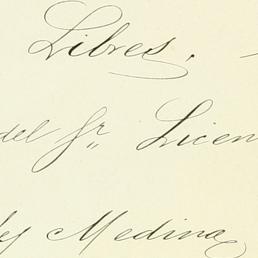 Libres,
del Sr. Licen
ley Medina